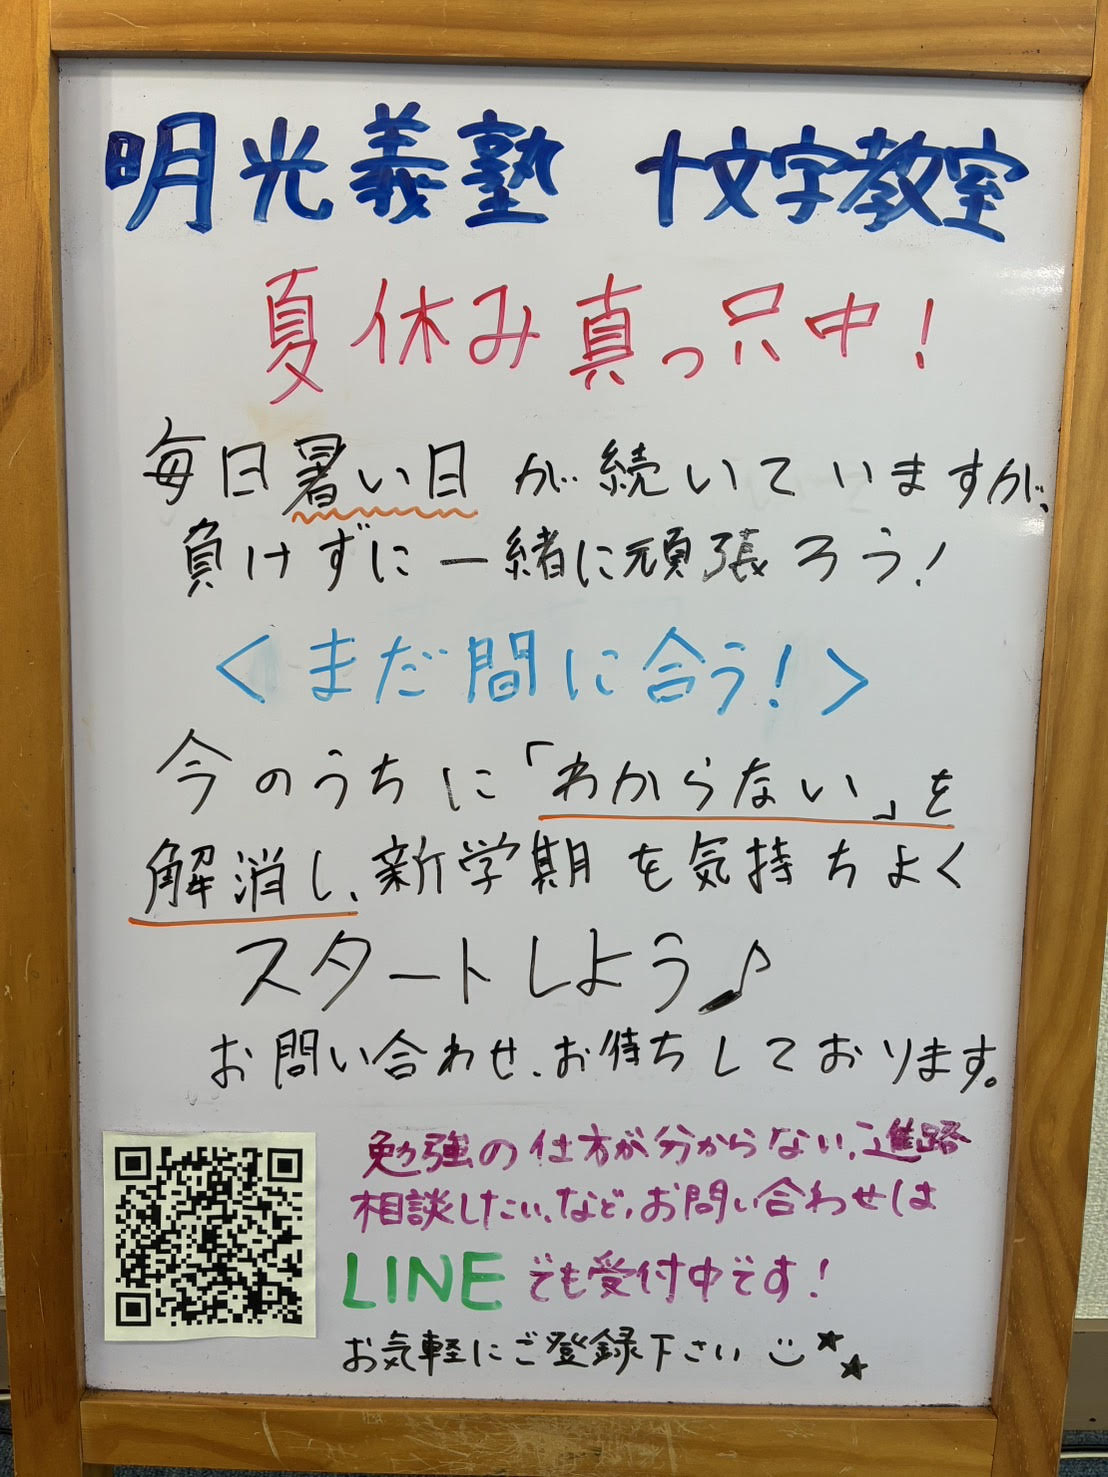 明光義塾 十文字教室
夏休み真っ只中!
毎日暑い日が続いていますが、
負けずに一緒に頑張ろう!
<まだ間に合う!>
今のうちに「わからない」を
解消し、新学期を気持ちよく
スタートしよう♪
お問い合わせ、お待ちしております。
勉強の仕方が分からない、進路
相談したい、など、お問い合わせは
LINEでも受付中です!
お気軽にご登録下さい